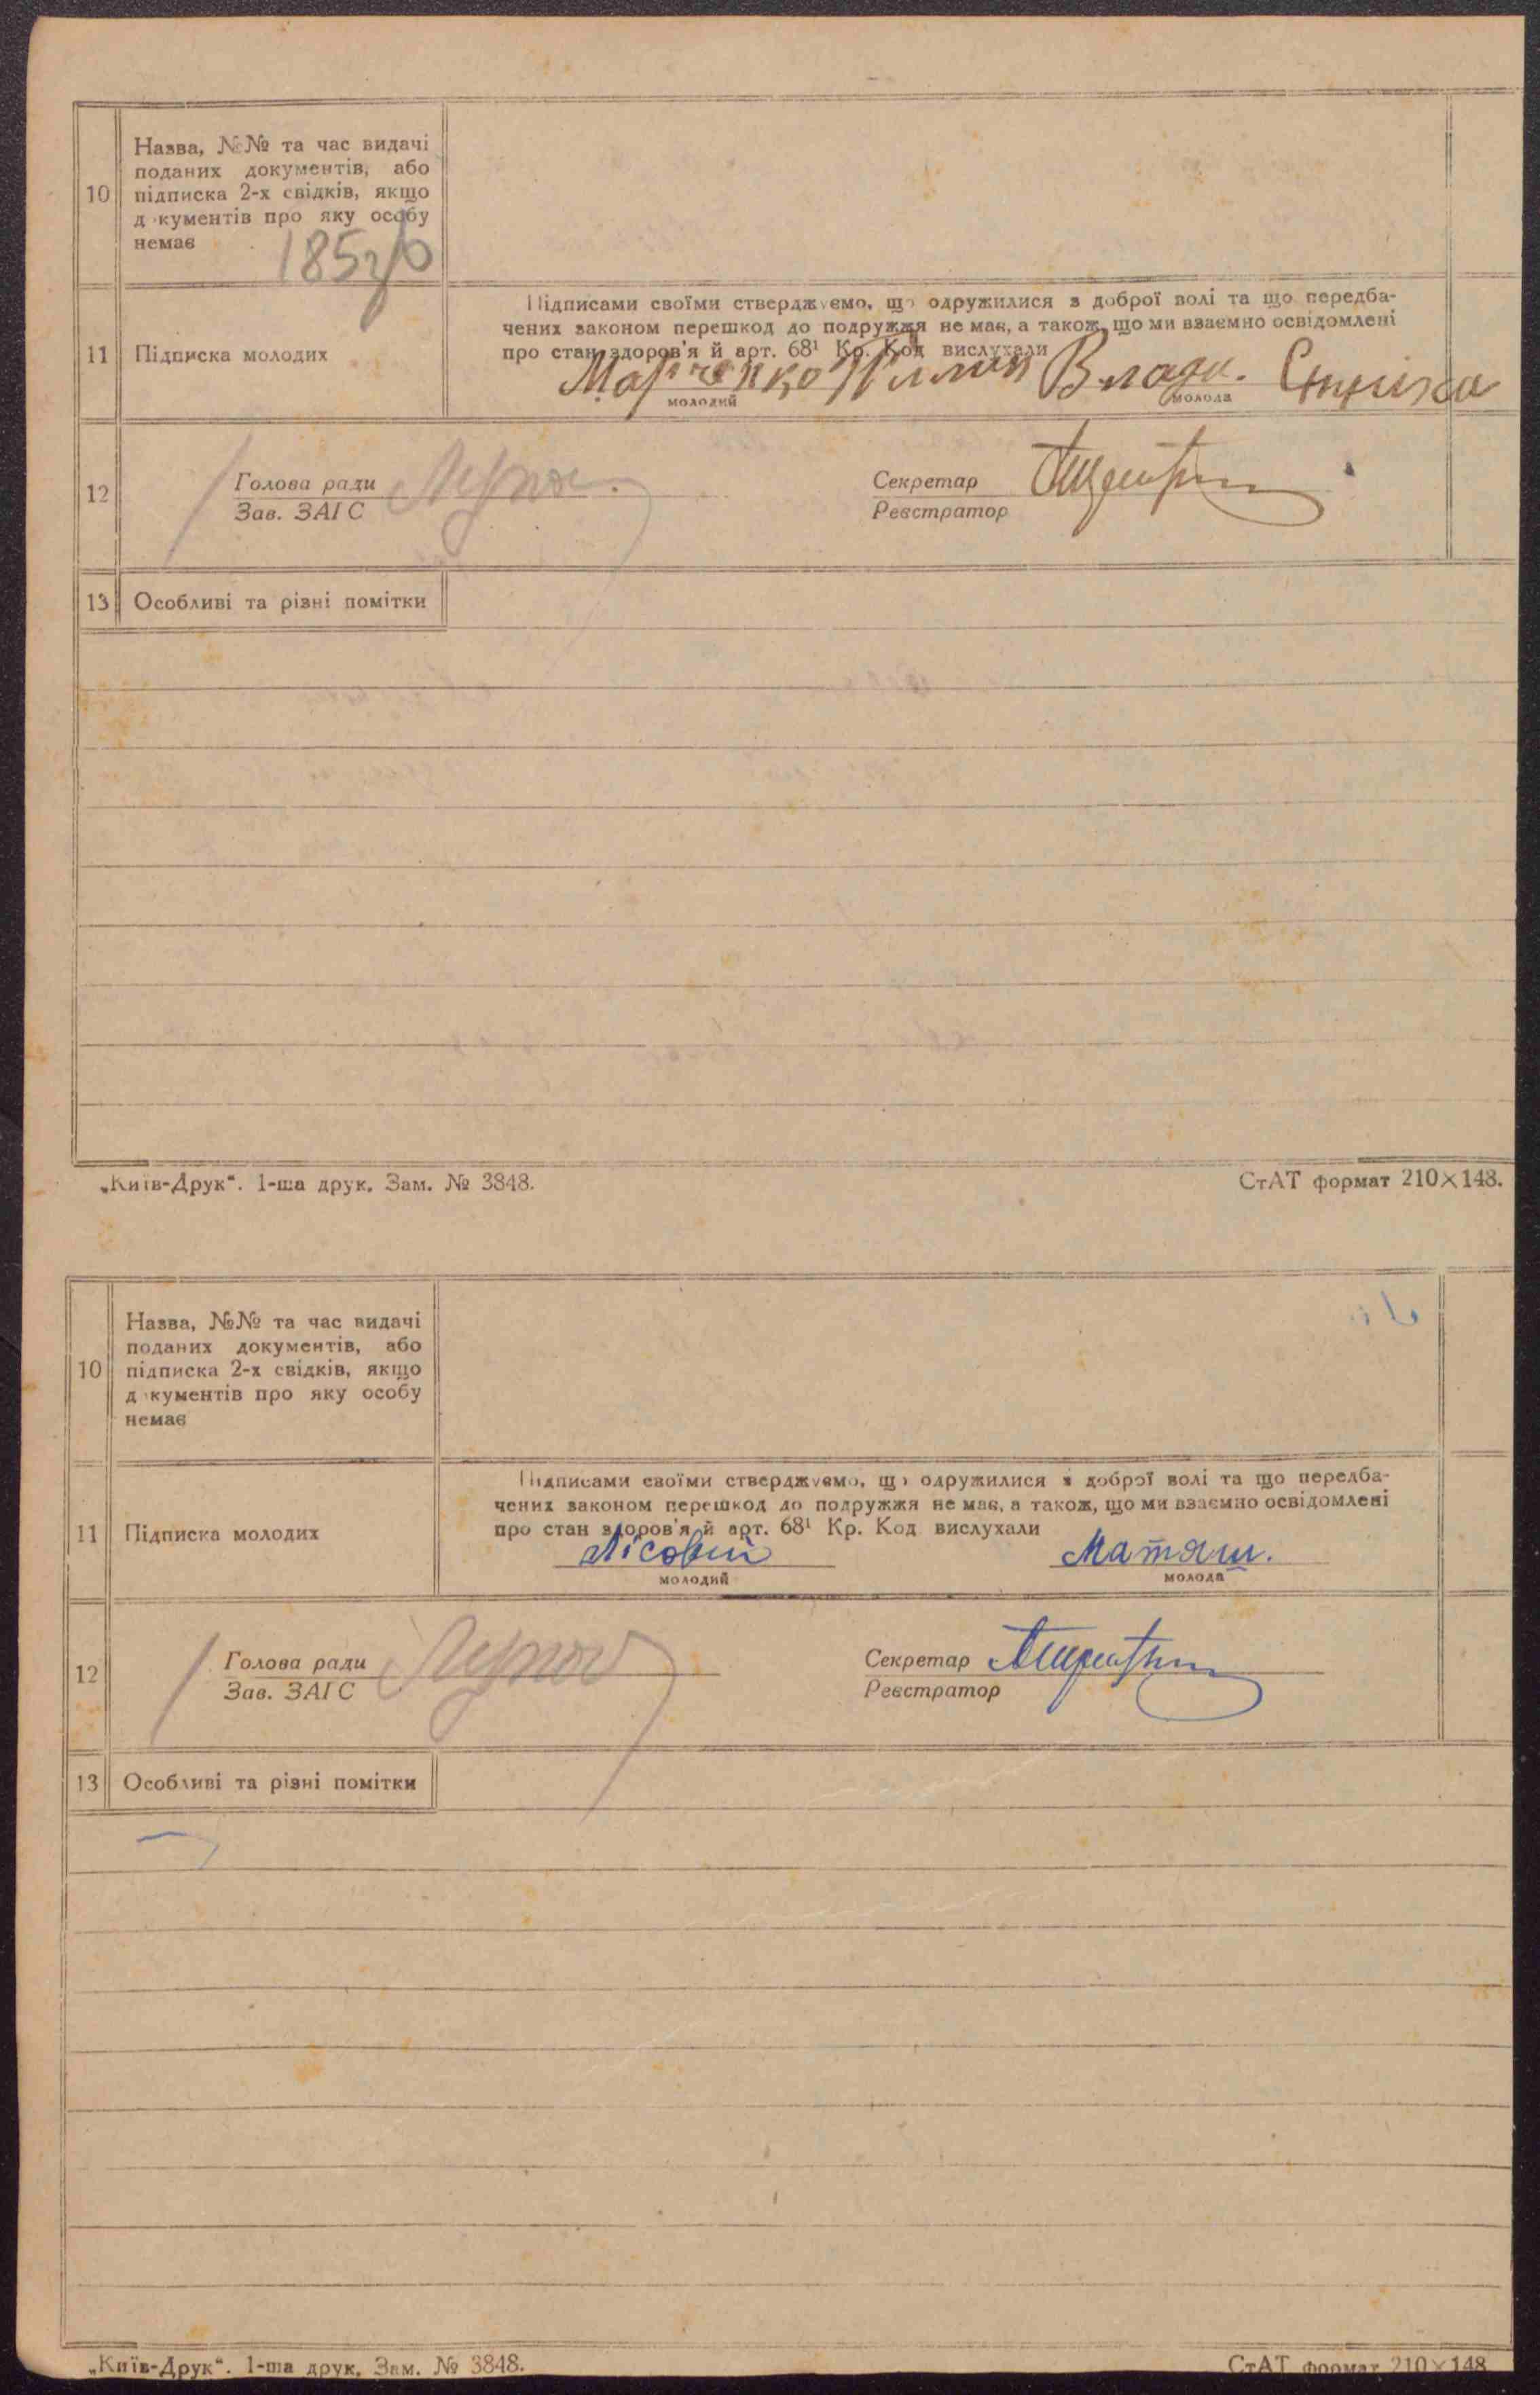 10
Назва, №№ та час видачі
поданих документів, або
підписка 2-х свідків, якщо
д кументів про яку особу
немає
11
Підписка молодих
Підписами своїми стверджуємо, що одружилися з доброї волі та що передба-
чених законом перешкод до подружжя не має, а також, що ми взаємно освідомлені
про стан здоров'я й арт. 68¹ Кр. Код вислухали
Марченко
молодий
молода
12
Голова ради
Зав. ЗАГС
Секретар
Реєстратор
13
Особливі та різні помітки
„Київ-Друк“. 1-ша друк. Зам. № 3848.
СтАТ формат 210×148.
10
Назва, №№ та час видачі
поданих документів, або
підписка 2-х свідків, якщо
д кументів про яку особу
немає
11
Підписка молодих
Підписами своїми стверджуємо, що одружилися з доброї волі та що передба-
чених законом перешкод до подружжя не має, а також, що ми взаємно освідомлені
про стан здоров'я й арт. 68¹ Кр. Код вислухали
Лісовий Матяш.
молодий
молода
12
Голова ради
Зав. ЗАГС
Секретар
Реєстратор
13
Особливі та різні помітки
„Київ-Друк“. 1-ша друк. Зам. № 3848.
СтАТ формат 210×148